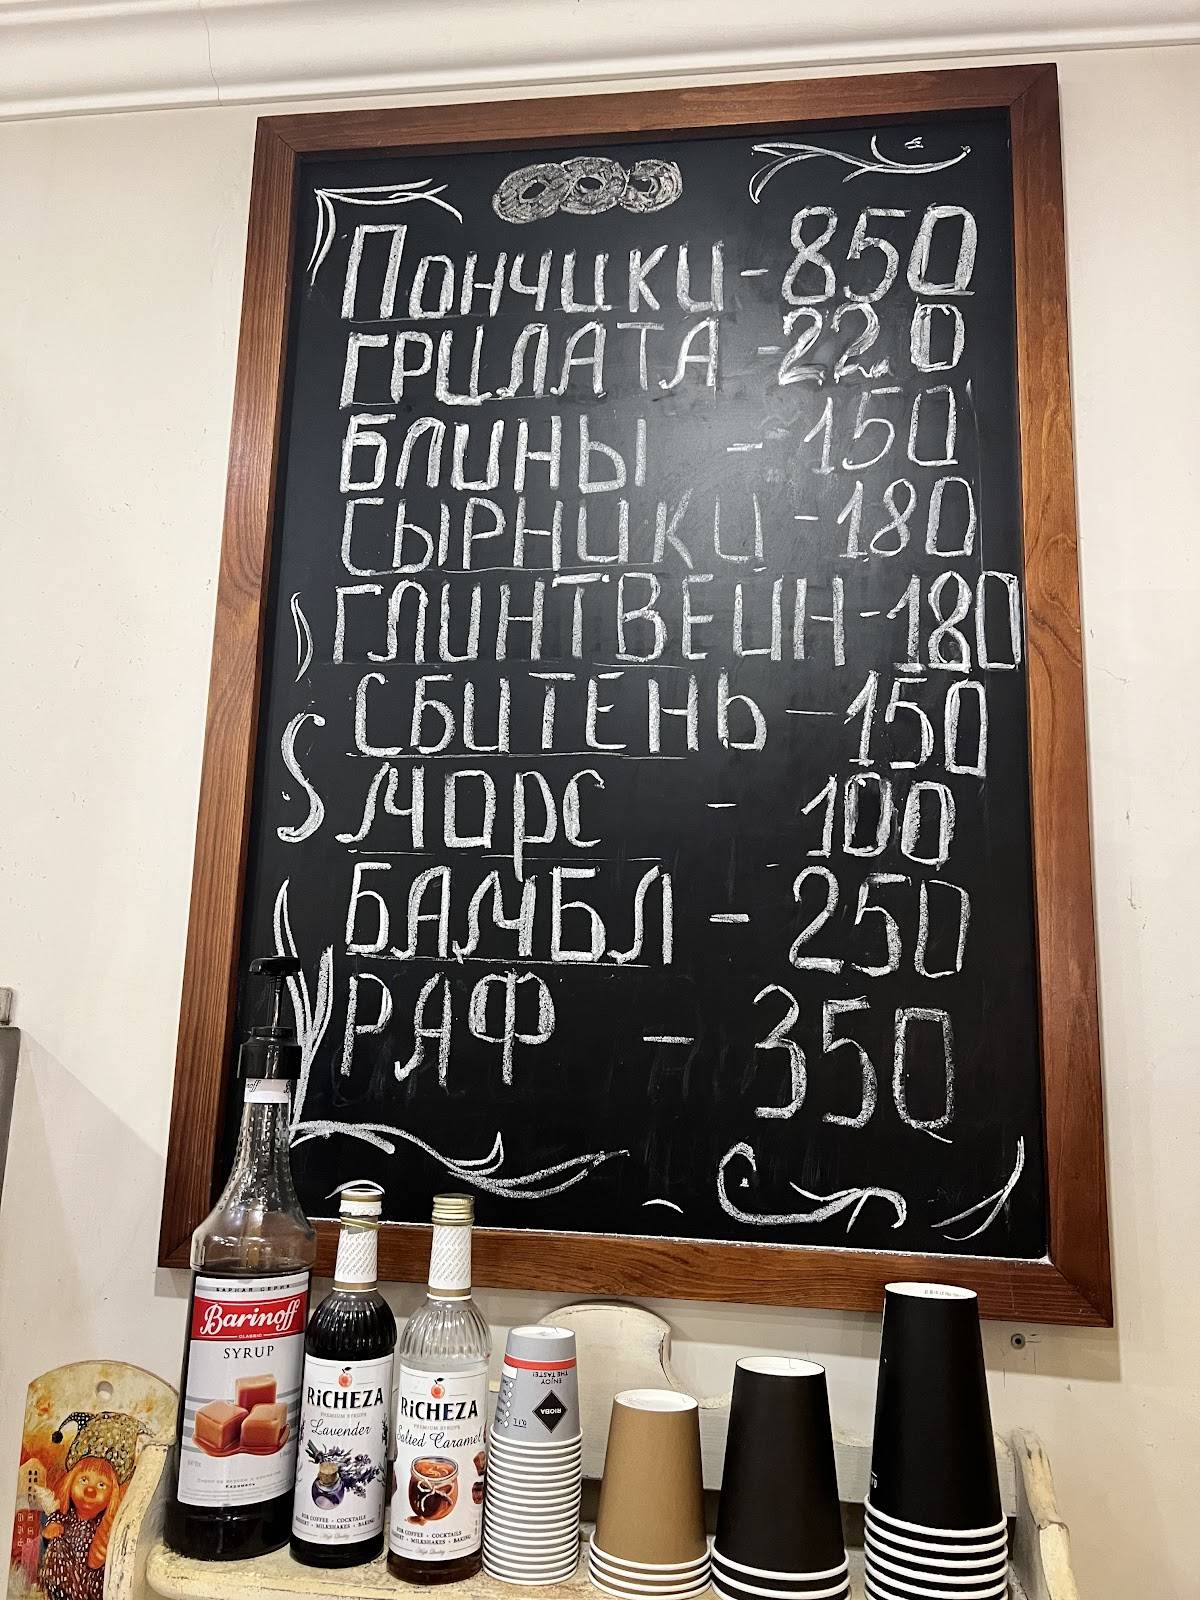 Пончики - 850
ГРИЛАТА - 220
БЛИНЫ - 150
СЫРНИКИ - 180
ГЛИНТВЕИН - 180
СБИТЕНЬ - 150
МОРС - 100
БАМБЛ - 250
РАФ - 350
БАРНАЯ СЕРИЯ
Barinoff
CLASSIC
SYRUP
Карамель
RiCHEZA
PREMIUM SYRUPS
Lavender
FOR COFFEE • COCKTAILS
DESSERT • MILKSHAKES • BAKING
High Quality
RiCHEZA
PREMIUM SYRUPS
Salted Caramel
FOR COFFEE • COCKTAILS
DESSERT • MILKSHAKES • BAKING
High Quality
ENJOY
THE TASTE!
RIOBA